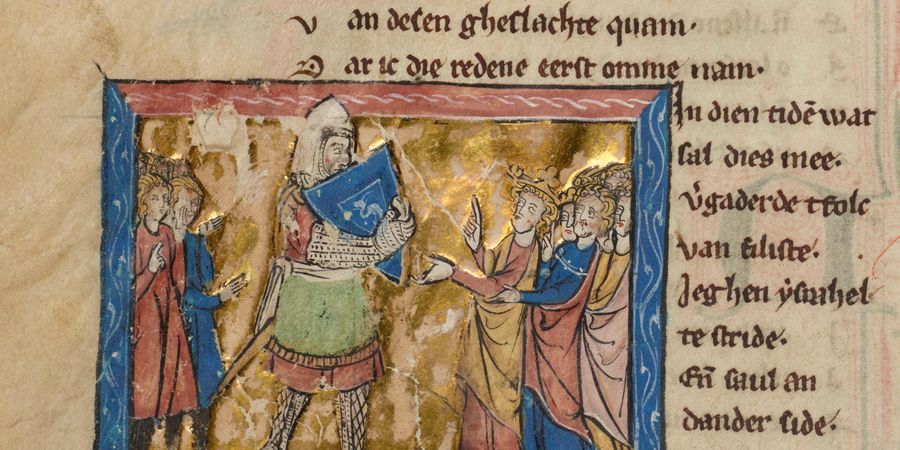 Van desen gheslachte quam·
Dar ic die redene eerst omme nam·
In dien tidē wat
sal dies mee·
v̕gaderde tfolc
van filiste·
Jeghen ẏsrahel
te stride·
Eñ saul an
dander side·